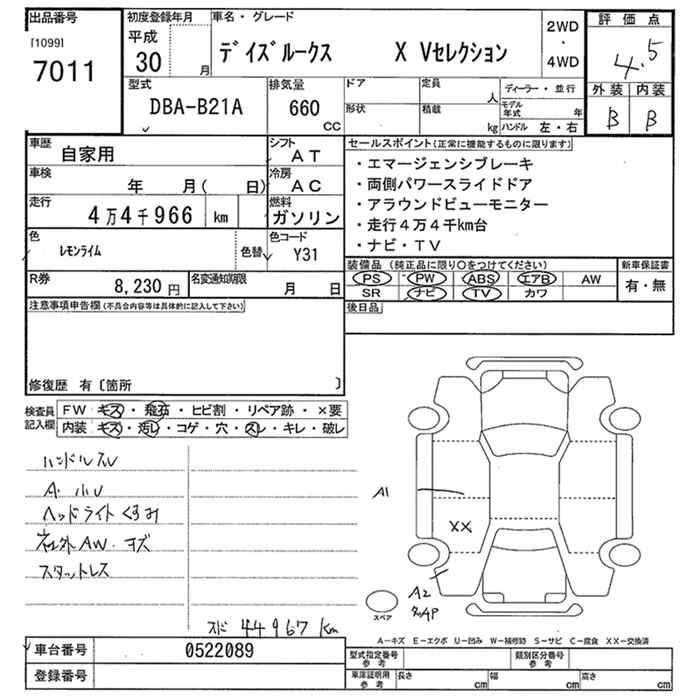 出品番号
[1099]
7011
初度登録年月
平成
30 月
車名・グレード
デイズルークス X Vセレクション
2WD
・
4WD
評価点
4.5
外装 内装
B B
型式
DBA-B21A
排気量
660
CC
ドア
形状
定員
人
積載
kg
ディーラー・並行
モデル年式 年
ハンドル 左・右
車歴
自家用
シフト
AT
車検
年 月( 日)
冷房
AC
走行
4万4千966 km
燃料
ガソリン
色
レモンライム
色替
色コード
Y31
R券
8,230円
名変通知期限
月 日
セールスポイント(正常に機能するものに限ります)
・エマージェンシブレーキ
・両側パワースライドドア
・アラウンドビューモニター
・走行4万4千km台
・ナビ・TV
装備品(純正品に限り○をつけてください)
PS PW ABS エアB AW
SR ナビ TV カワ
新車保証書
有・無
後日品
注意事項申告欄(不具合内容等は具体的に記入して下さい)
修復歴 有〔箇所 〕
検査員記入欄
FW キズ・飛石・ヒビ割・リペア跡・×要
内装 キズ・汚レ・コゲ・穴・スレ・キレ・破レ
ハンドルスレ
A・小U
ヘッドライトくすみ
社外AW・キズ
スタットレス
スド 44967 Km
A1
XX
A2
スペア
A-キズ E-エクボ U-凹み W-補修跡 S-サビ C-腐食 XX-交換済
車台番号
0522089
登録番号
型式指定番号
参考
類別区分番号
参考
車庫証明用
参考
長さ cm
幅 cm
高さ cm